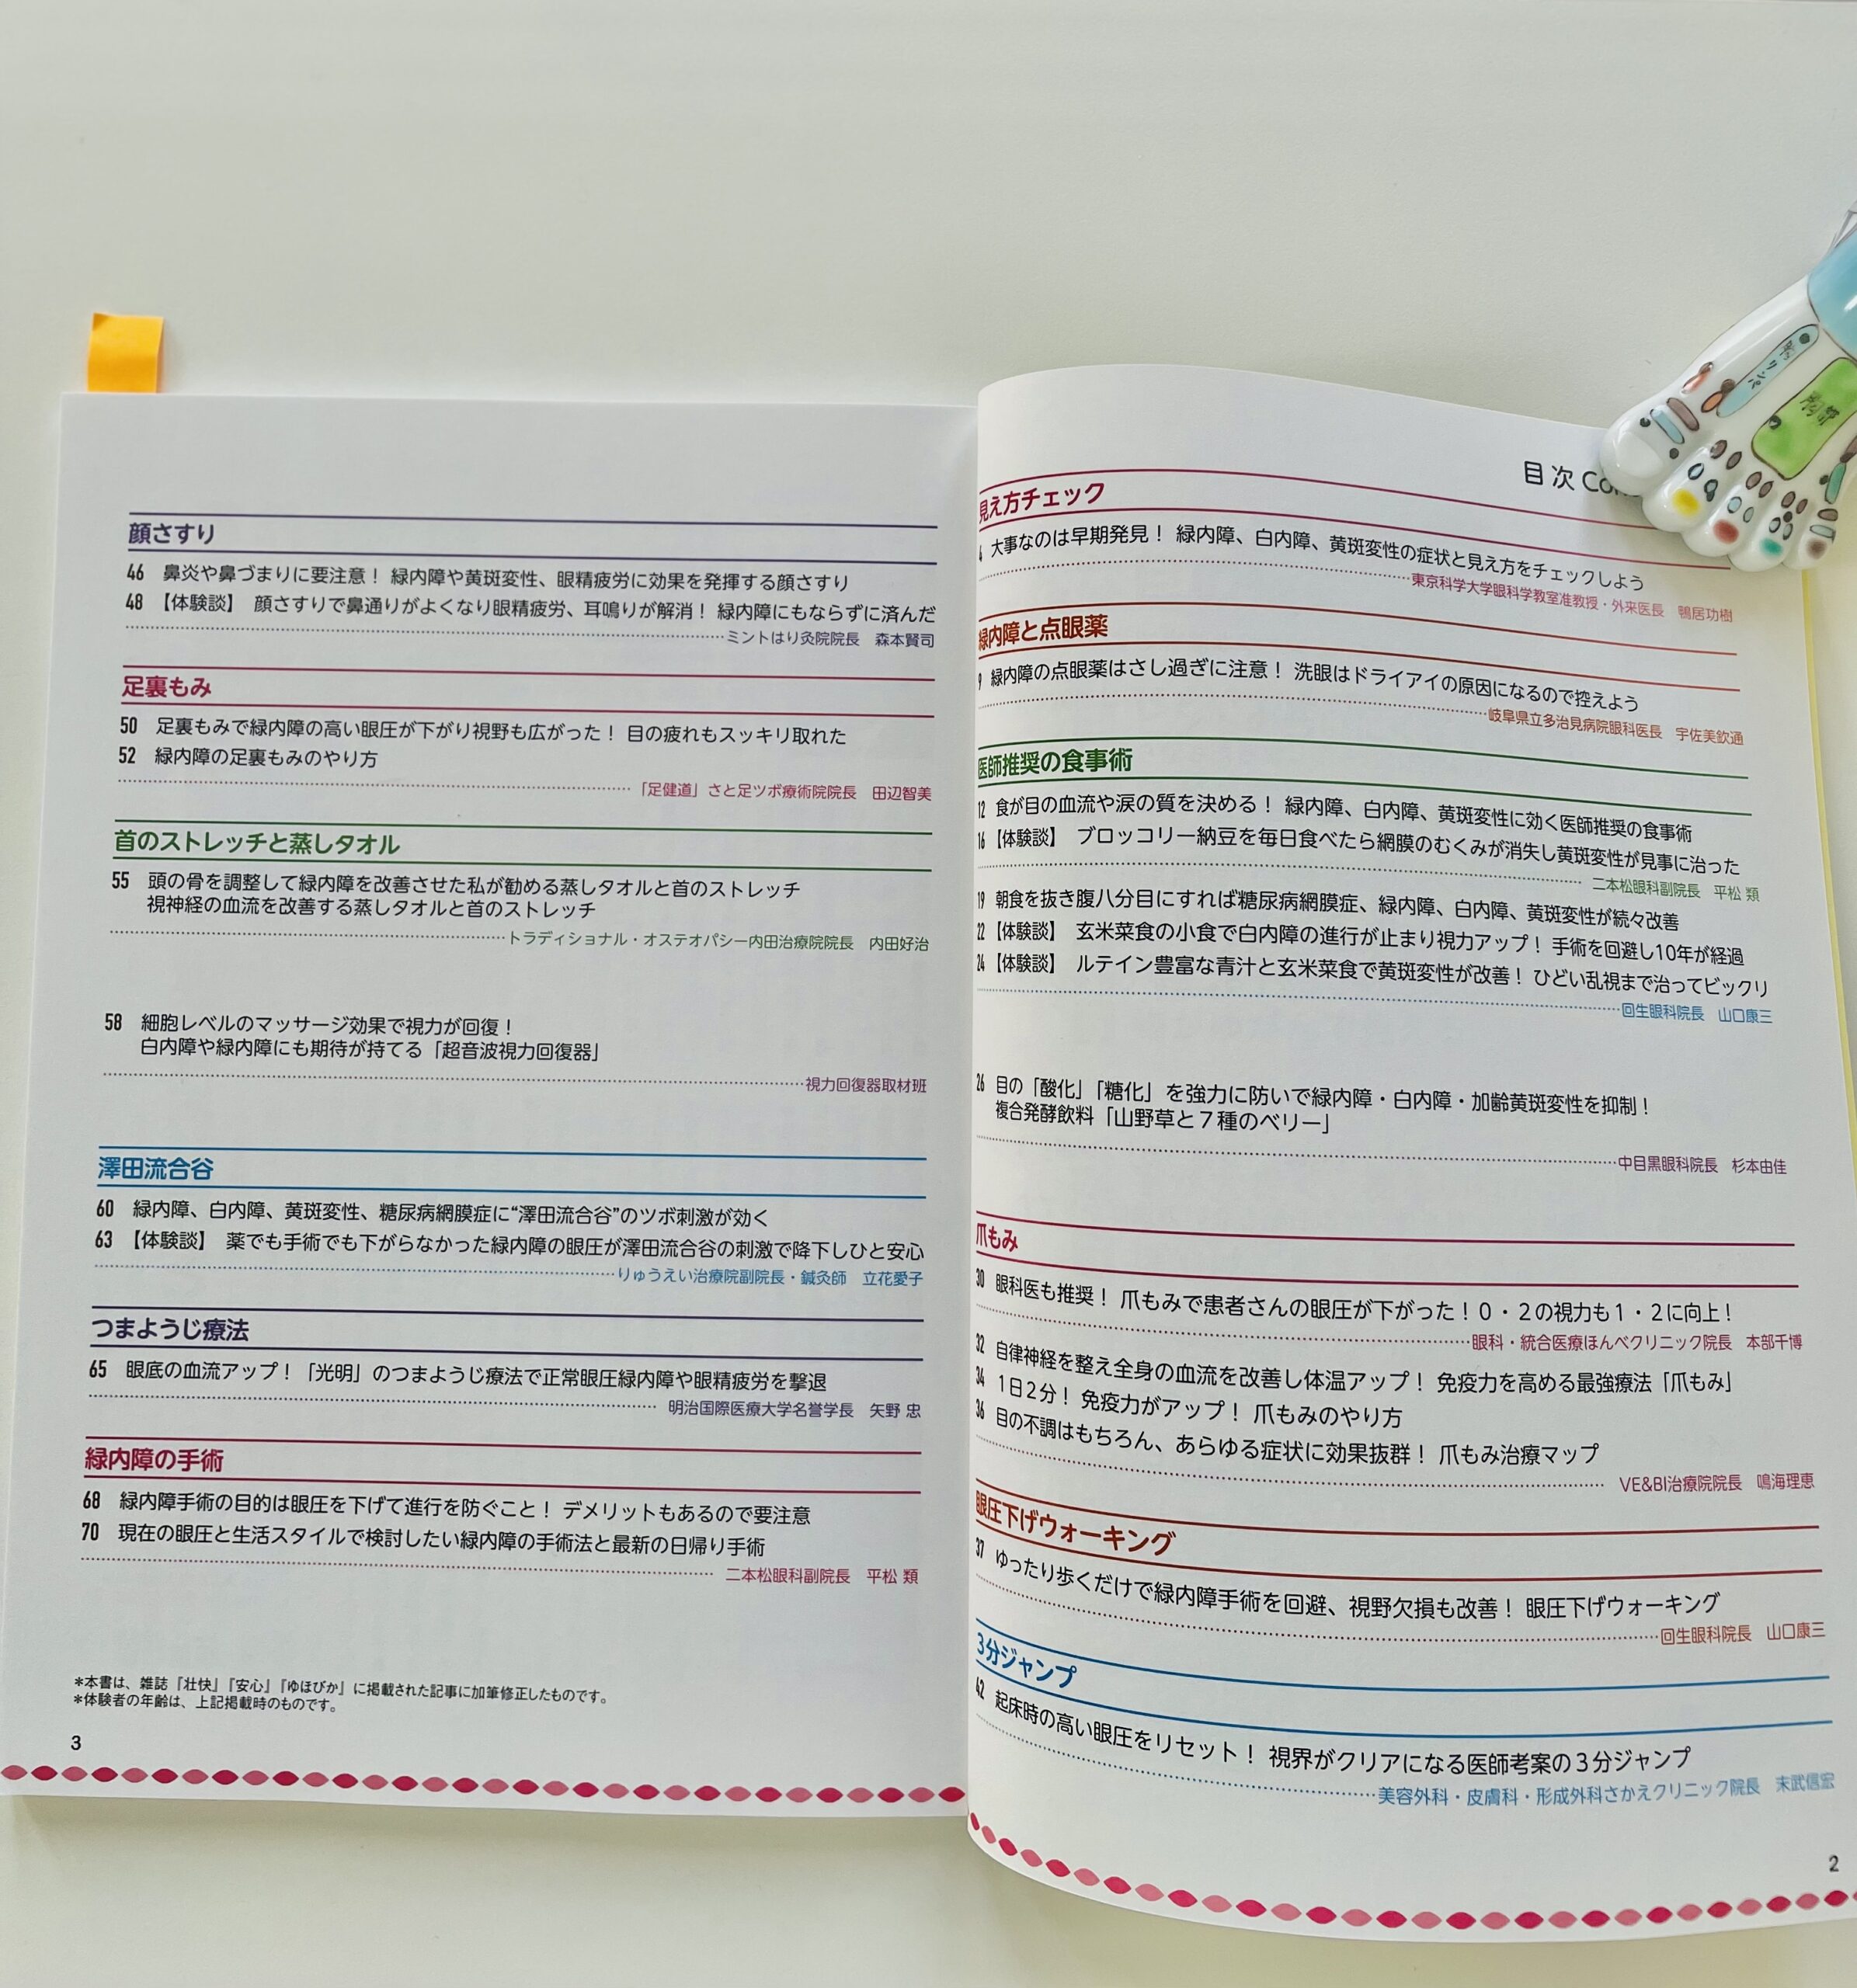 目次
見え方チェック
4 大事なのは早期発見！ 緑内障、白内障、黄斑変性の症状と見え方をチェックしよう
東京科学大学眼科学教室准教授・外来医長 鴨居功樹
緑内障と点眼薬
9 緑内障の点眼薬はさし過ぎに注意！ 洗眼はドライアイの原因になるので控えよう
岐阜県立多治見病院眼科医長 宇佐美欽通
医師推奨の食事術
12 食が目の血流や涙の質を決める！ 緑内障、白内障、黄斑変性に効く医師推奨の食事術
16 【体験談】 ブロッコリー納豆を毎日食べたら網膜のむくみが消失し黄斑変性が見事に治った
二本松眼科副院長 平松 類
19 朝食を抜き腹八分目にすれば糖尿病網膜症、緑内障、白内障、黄斑変性が続々改善
22 【体験談】 玄米菜食の小食で白内障の進行が止まり視力アップ！ 手術を回避し10年が経過
24 【体験談】 ルテイン豊富な青汁と玄米菜食で黄斑変性が改善！ ひどい乱視まで治ってビックリ
回生眼科院長 山口康三
26 目の「酸化」「糖化」を強力に防いで緑内障・白内障・加齢黄斑変性を抑制！
複合発酵飲料「山野草と７種のベリー」
中目黒眼科院長 杉本由佳
爪もみ
30 眼科医も推奨！ 爪もみで患者さんの眼圧が下がった！０・２の視力も１・２に向上！
眼科・統合医療ほんべクリニック院長 本部千博
32 自律神経を整え全身の血流を改善し体温アップ！ 免疫力を高める最強療法「爪もみ」
34 １日２分！ 免疫力がアップ！ 爪もみのやり方
36 目の不調はもちろん、あらゆる症状に効果抜群！ 爪もみ治療マップ
VE&BI治療院院長 鳴海理恵
眼圧下げウォーキング
37 ゆったり歩くだけで緑内障手術を回避、視野欠損も改善！ 眼圧下げウォーキング
回生眼科院長 山口康三
３分ジャンプ
42 起床時の高い眼圧をリセット！ 視界がクリアになる医師考案の３分ジャンプ
美容外科・皮膚科・形成外科さかえクリニック院長 末武信宏
2
顔さすり
46 鼻炎や鼻づまりに要注意！ 緑内障や黄斑変性、眼精疲労に効果を発揮する顔さすり
48 【体験談】 顔さすりで鼻通りがよくなり眼精疲労、耳鳴りが解消！ 緑内障にもならずに済んだ
ミントはり灸院院長 森本賢司
足裏もみ
50 足裏もみで緑内障の高い眼圧が下がり視野も広がった！ 目の疲れもスッキリ取れた
52 緑内障の足裏もみのやり方
「足健道」さと足ツボ療術院院長 田辺智美
首のストレッチと蒸しタオル
55 頭の骨を調整して緑内障を改善させた私が勧める蒸しタオルと首のストレッチ
視神経の血流を改善する蒸しタオルと首のストレッチ
トラディショナル・オステオパシー内田治療院院長 内田好治
58 細胞レベルのマッサージ効果で視力が回復！
白内障や緑内障にも期待が持てる「超音波視力回復器」
視力回復器取材班
澤田流合谷
60 緑内障、白内障、黄斑変性、糖尿病網膜症に“澤田流合谷”のツボ刺激が効く
63 【体験談】 薬でも手術でも下がらなかった緑内障の眼圧が澤田流合谷の刺激で降下しひと安心
りゅうえい治療院副院長・鍼灸師 立花愛子
つまようじ療法
65 眼底の血流アップ！「光明」のつまようじ療法で正常眼圧緑内障や眼精疲労を撃退
明治国際医療大学名誉学長 矢野 忠
緑内障の手術
68 緑内障手術の目的は眼圧を下げて進行を防ぐこと！ デメリットもあるので要注意
70 現在の眼圧と生活スタイルで検討したい緑内障の手術法と最新の日帰り手術
二本松眼科副院長 平松 類
＊本書は、雑誌『壮快』『安心』『ゆほびか』に掲載された記事に加筆修正したものです。
＊体験者の年齢は、上記掲載時のものです。
3
リンパ
胸部